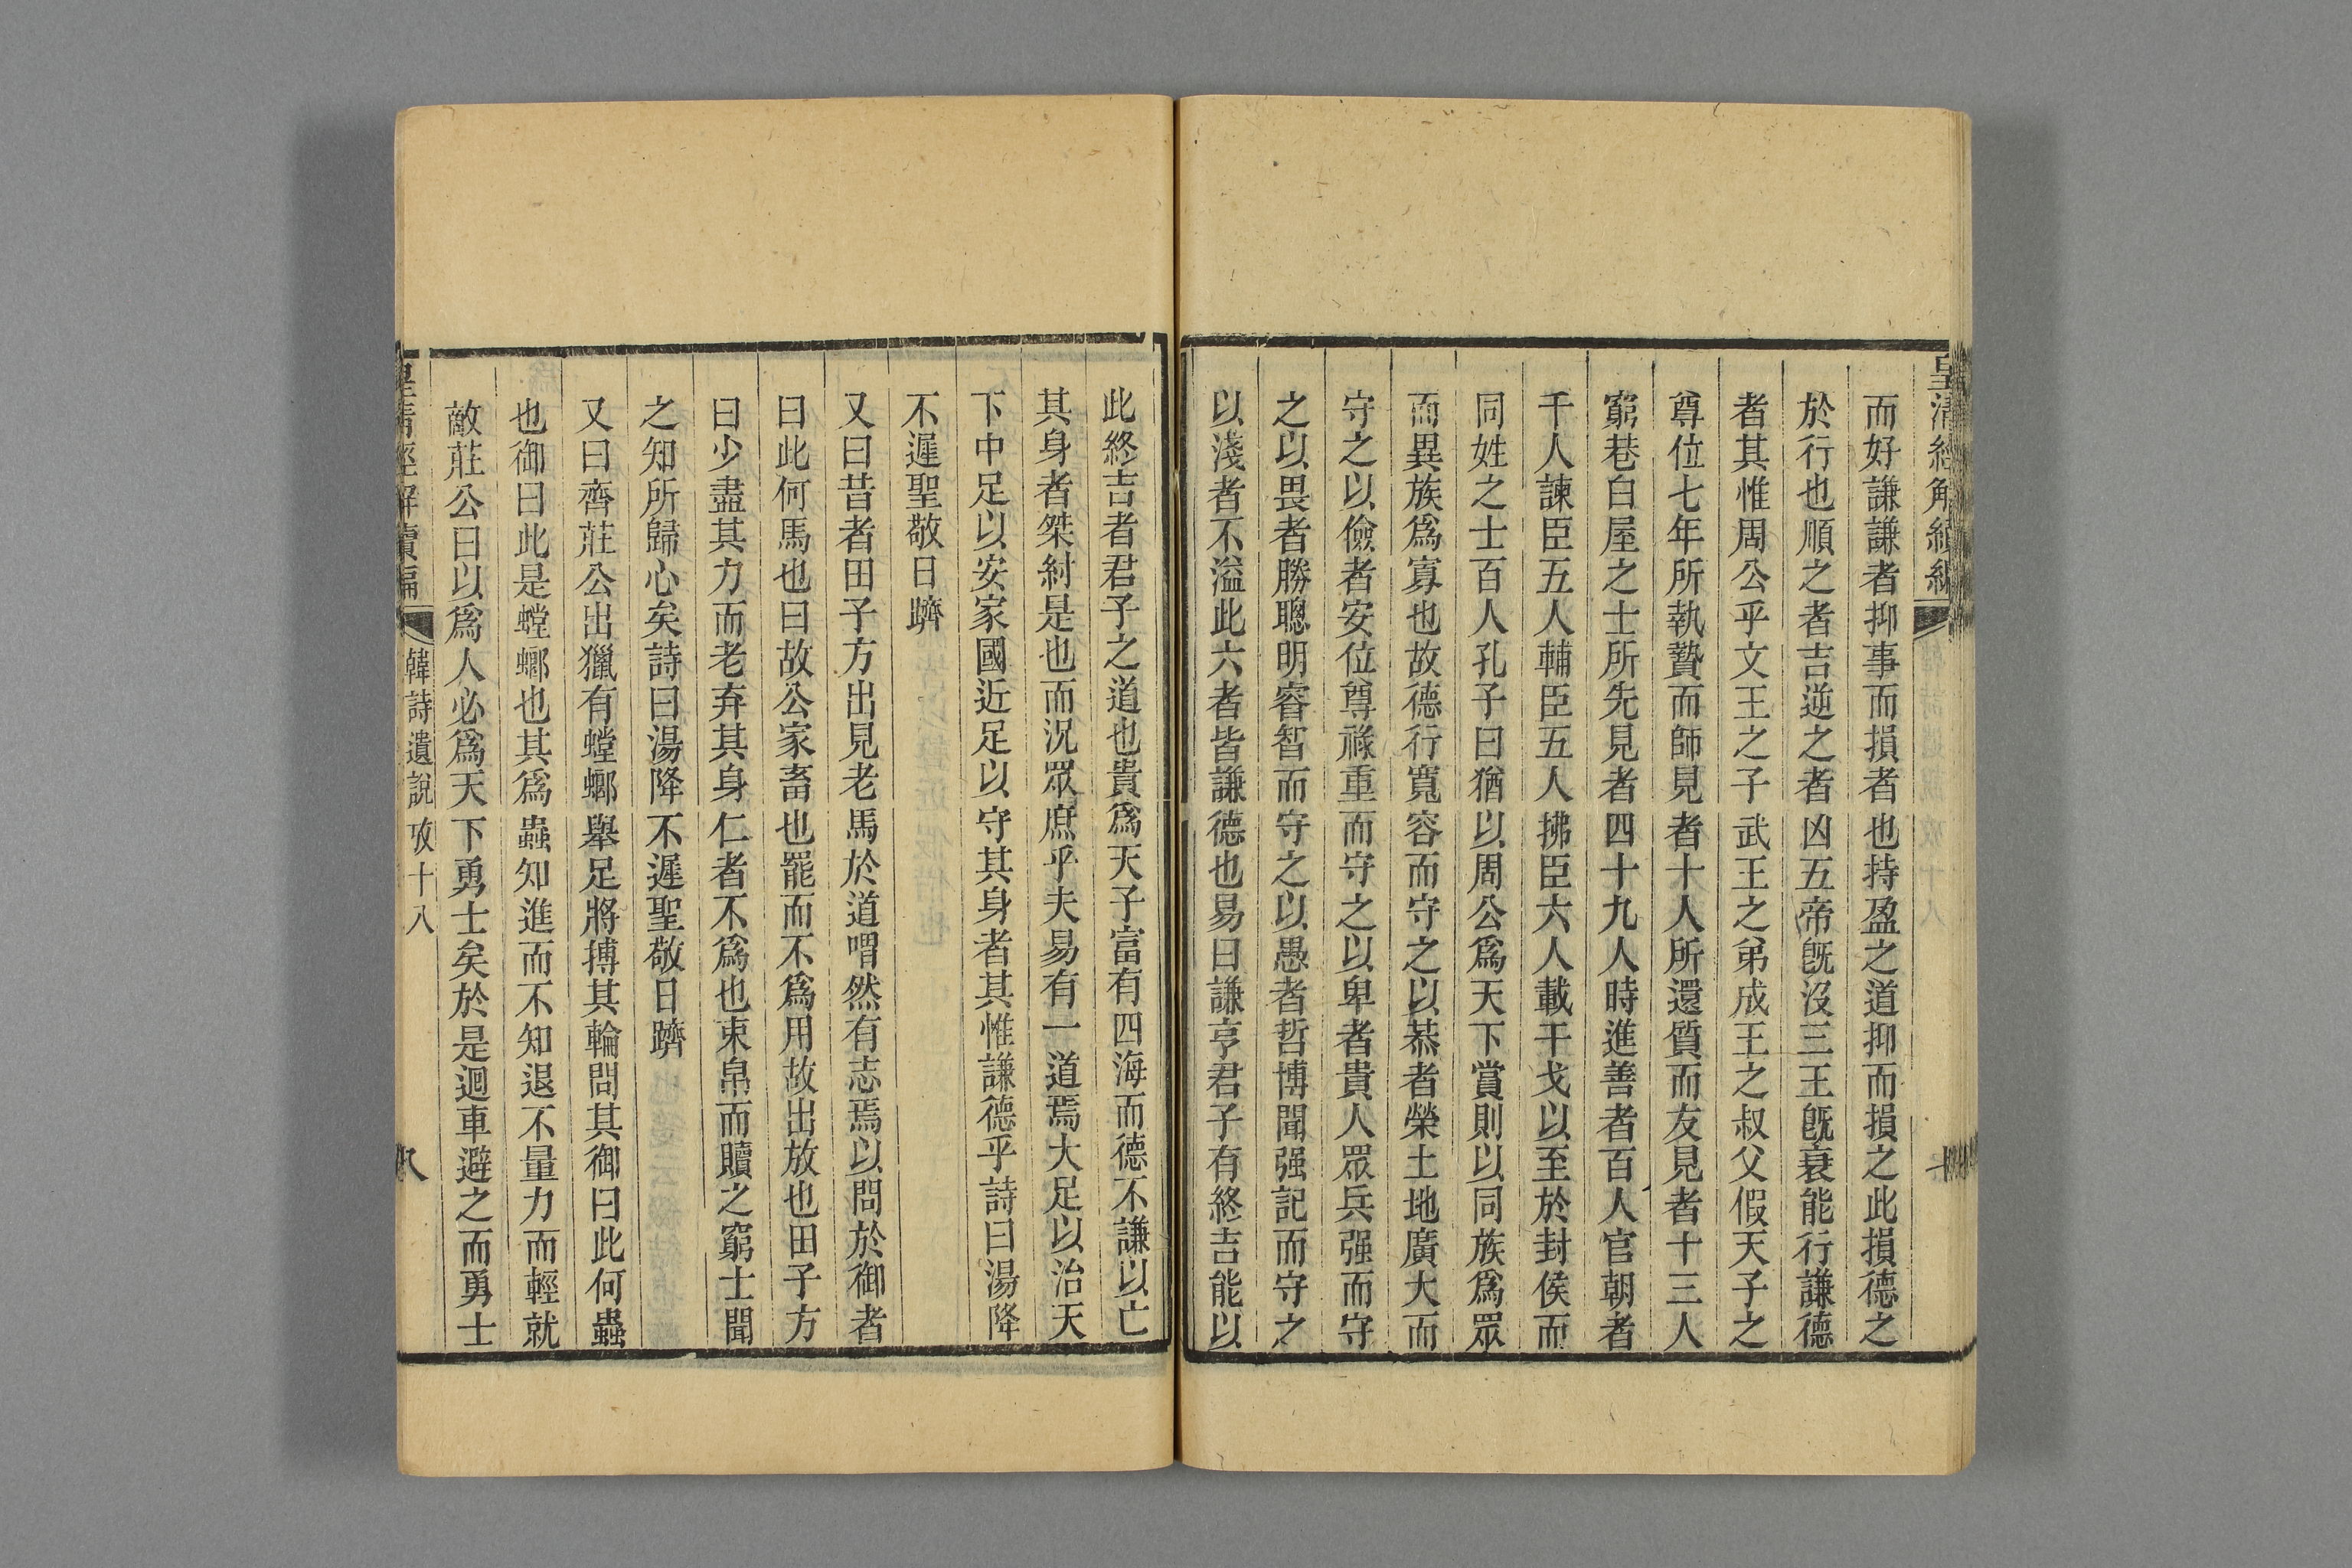 皇清經解續編
而好謙謙者抑事而損者也持盈之道抑而損之此損德之
於行也順之者吉逆之者凶五帝旣沒三王旣衰能行謙德
者其惟周公乎文王之子武王之弟成王之叔父假天子之
尊位七年所執贄而師見者十人所還質而友見者十三人
窮巷白屋之士所先見者四十九人時進善者百人官朝者
千人諫臣五人輔臣五人拂臣六人載干戈以至於封侯而
同姓之士百人孔子曰猶以周公爲天下賞則以同族爲眾
而異族爲寡也故德行寬容而守之以恭者榮土地廣大而
守之以儉者安位尊祿重而守之以卑者貴人眾兵强而守
之以畏者勝聰明睿智而守之以愚者哲博聞强記而守之
以淺者不溢此六者皆謙德也易曰謙亨君子有終吉能以
此終吉者君子之道也貴爲天子富有四海而德不謙以亡
其身者桀紂是也而況眾庶乎夫易有一道焉大足以治天
下中足以安家國近足以守其身者其惟謙德乎詩曰湯降
不遲聖敬日躋
又曰昔者田子方出見老馬於道喟然有志焉以問於御者
曰此何馬也曰故公家畜也罷而不爲用故出放也田子方
曰少盡其力而老弃其身仁者不爲也束帛而贖之窮士聞
之知所歸心矣詩曰湯降不遲聖敬日躋
又曰齊莊公出獵有螳螂舉足將搏其輪問其御曰此何蟲
也御曰此是螳螂也其爲蟲知進而不知退不量力而輕就
敵莊公曰以爲人必爲天下勇士矣於是迴車避之而勇士
皇清經解續編 韓詩遺說攷十八 八